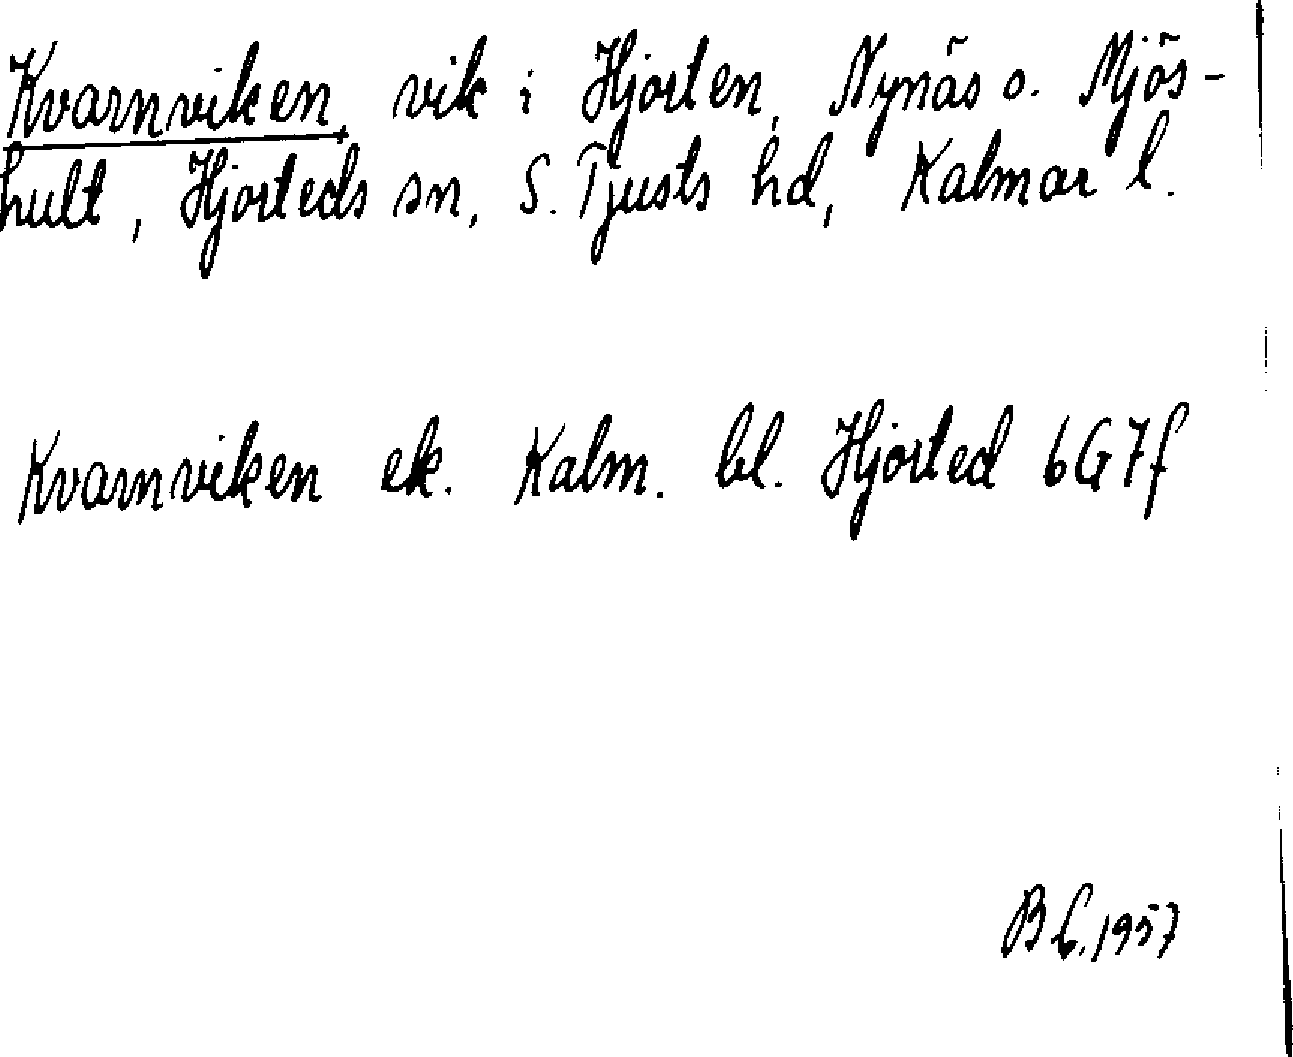 Kvarnviken, vik i Hjorten, Nynäs o. Mjös-
hult, Hjorteds sn, S. Tjusts hd, Kalmar l.
Kvarnviken ek. Kalm. bl. Hjorted 6G7f
1957